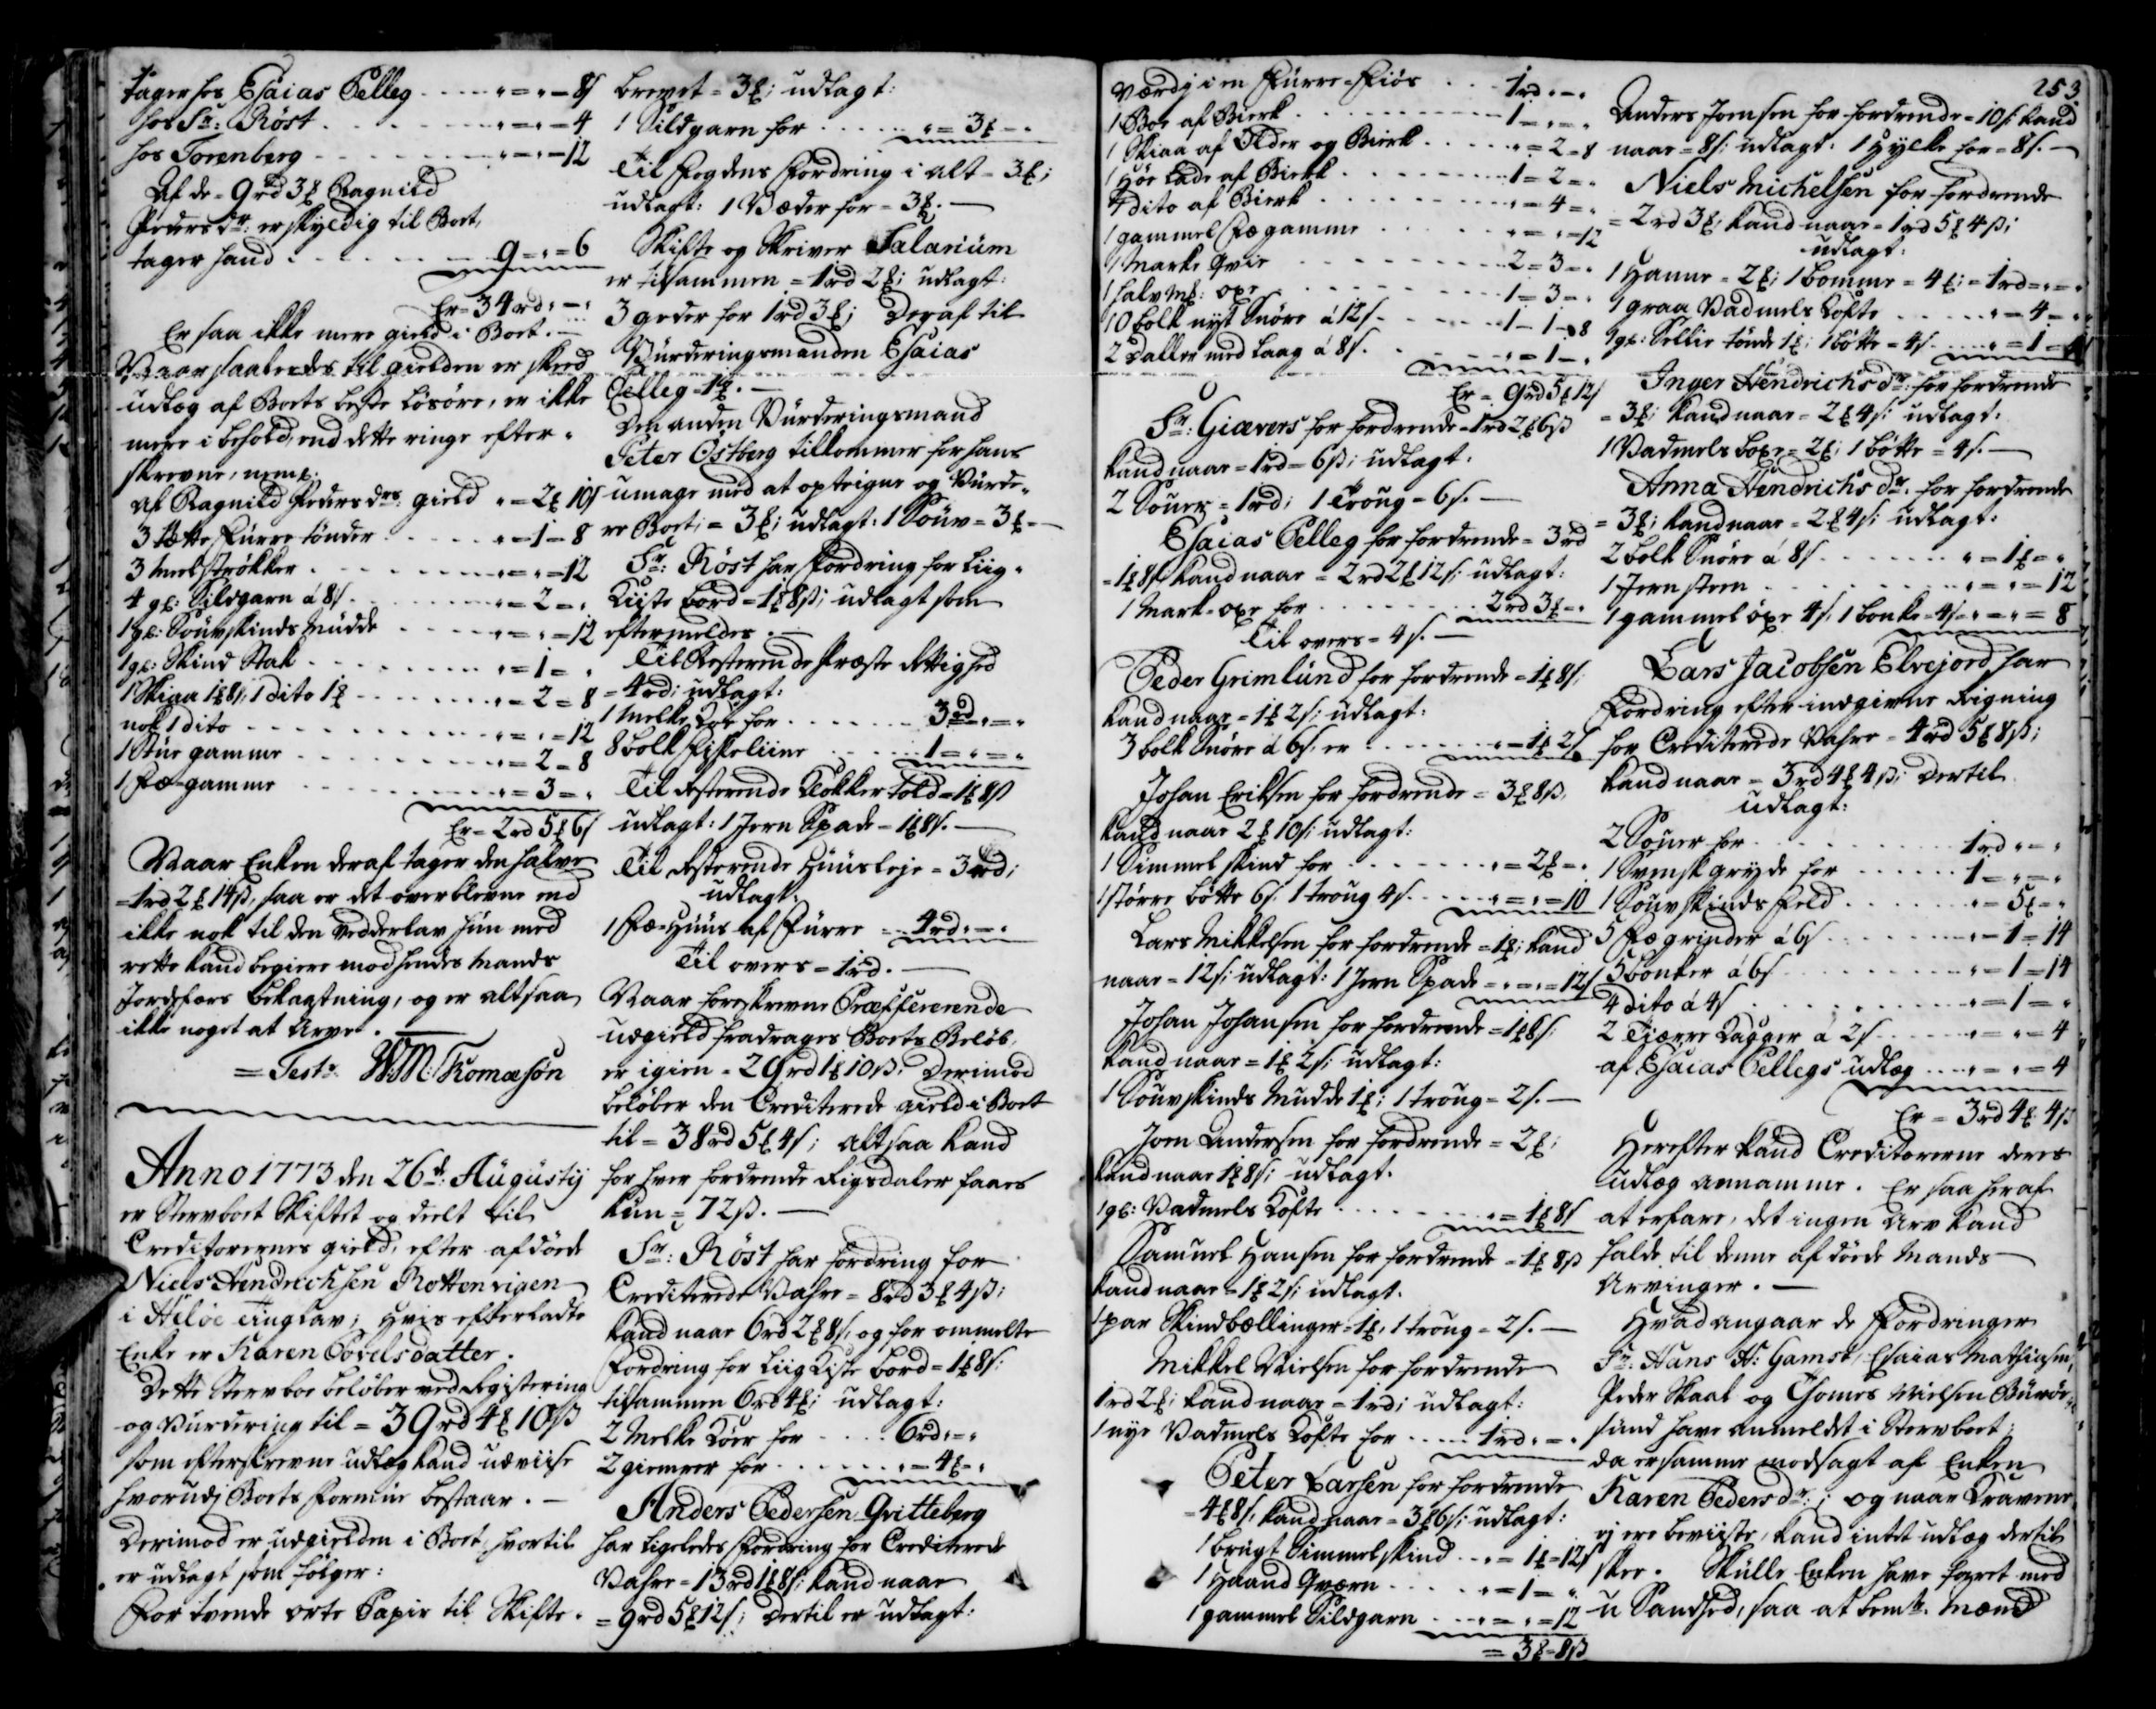 tager hos Esaias Pelleg . . . . " = " – 8 s
hos Sr: Röst . . . . " = " – 4
hos Torenberg . . . . " = " – 12
Af de = 9 rd 3 ℔ Ragnild
Peders dr: er skyldig til Boet,
tager hand . . . . 9 = " = 6
Er = 34 rd " – "
Er saa ikke mere gield i Boet. –
Naar saaledes til gielden er skeed
udlæg af Boets beste Løsøre, er ikke
mere i behold, end dette ringe efter-
skrevne, neml:
af Ragnild Peders drs: gield " = 2 ℔ 10 s
3 tette Furre tönder . . . . " = 1 – 8
3 meel strökker . . . . " = " = 12
4 gl: Sildgarn á 8 s . . . . " = 2 = "
1 gl: Souvskinds Mudde . . . . " = " = 12
1 gl: Skind Stak . . . . " = 1 = "
1 Skiaa 1 ℔ 8 s; 1 dito 1 ℔ . . . . " = 2 = 8
nok 1 dito . . . . " = " = 12
1 Stue gamme . . . . " = 2 = 8
1 Fæ-gamme . . . . " = 3 = "
Er = 2 rd 5 ℔ 6 s
Naar Enken deraf tager den halve
= 1 rd 2 ℔ 14 ß, saa er det overblevne end
ikke nok til den Vedderlav hun med
rette kand begiere mod hendes Mands
Jordefærs bekaastning, og er altsaa
ikke noget at Arve. —
= Test: WM: Thomæsön
Anno 1773 den 26de: Augustij
er Stervboet Skiftet og deelt til
Creditorernes gield, efter afdöde
Niels Hendrichsen Rottenvigen
i Helöe tinglav; hvis efterladte
Enke er Karen Povelsdatter.
Dette Stervboe beløber ved Registering
og Vurdering til = 39 rd 4 ℔ 10 ß
som efterskrevne udlæg kand udviise
hvorudj Boets Formue bestaar. –
Derimod er udgielden i Boet, hvortil
er udlagt som følger:
For tvende arte Papir til Skifte-
brevet = 3 ℔; udlagt:
1 Sildgarn for . . . . " = 3 ℔ – "
Til Fogdens Fordring i alt = 3 ℔;
udlagt: 1 Væder for = 3 ℔. —
Skifte og Skriver Salarium
er tilsammen = 1 rd 2 ℔; udlagt:
3 geder for 1 rd 3 ℔; Deraf til
Vurderingsmanden Esaias
Pelleg = 1 ℔. —
Den anden Vurderingsmand
Peter Östberg tilkommer for hans
umage med at opteigne og Vurde-
re Boet; = 3 ℔; udlagt: 1 Souv = 3 ℔ –
Sr: Röst har Fordring for Liig-
Kiste bord = 1 ℔ 8 ß; udlagt som
eftermeldes. —
Til Resterende Præste Rettighed
= 4 rd; udlagt:
1 Melke Koe for . . . . 3 rd " = "
8 bolk Fiskeliine . . . . 1 = " = "
Til Resterende Klokker Told = 1 ℔ 8 ß
udlagt: 1 Jern Spade = 1 ℔ 8 s. —
Til Resterende Huusleje = 3 rd;
udlagt:
1 Fæ-Huus af Furre = 4 rd " – "
Til overs = 1 rd. —
Naar foreskrevne Præfererende
udgield fradrages Boets Beløb,
er igien = 29 rd 1 ℔ 10 ß. Derimod
beløber den Crediterede gield i Boet
til = 38 rd 5 ℔ 4 s; altsaa kand
for hver fordrende Rigsdaler faaes
kun = 72 ß. —
Sr: Röst har fordring for
Crediterede Vahre = 8 rd 3 ℔ 4 ß;
kand naar 6 rd 2 ℔ 8 s, og for ommelte
Fordring for Liig Kiste bord = 1 ℔ 8 s:
tilsammen 6 rd 4 ℔; udlagt:
2 Melke Köer for . . . . 6 rd " = "
2 giemrer for . . . . " = 4 ℔ – "
Anders Pedersen Gvitteberg
har ligeledes Fordring for Crediterede
Vahre = 13 rd 1 ℔ 8 s; kand naar
= 9 rd 5 ℔ 12 s; Dertil er udlagt:
253
Værdj i en Furre-Fiös . . . 1 rd " – "
1 Boe af Bierk . . . . 1 – " – "
1 Skiaa af Older og Bierk . . . . " = 2 – 8
1 Höe Lade af Bierk . . . . 1 = 2 = "
1 dito af Bierk . . . . " = 4 = "
1 gammel Fægamme . . . . " = " = 12
1 Marke Qvie . . . . 2 = 3 = "
1 halv Mk: oxe . . . . 1 = 3 = "
10 bolk nyt Snöre á 12 s . . . . 1 – 1 – 8
2 Daller med Laag á 8 s. . . . " = 1 – "
Er = 9 rd 5 ℔ 12 s
Sr: Giævers for fordrende = 1 rd 2 ℔ 6 ß
kand naar = 1 rd = 6 ß; udlagt:
2 Souer = 1 rd; 1 Troug = 6 s. —
Esaias Pelleg for fordrende = 3 rd
= 1 ℔ 8 s kand naar = 2 rd 2 ℔ 12 s; udlagt:
1 Mark-oxe for . . . . 2 rd 3 ℔ = "
Til overs = 4 s. —
Peder Grimlund for fordrende = 1 ℔ 8 s;
kand naar = 1 ℔ 2 s; udlagt:
3 bolk Snöre á 6 s. er . . . . " = 1 ℔ 2 s
Johan Eriksen for fordrende = 3 ℔ 8 ß,
kand naar 2 ℔ 10 s; udlagt:
1 Simmel skind for . . . . " = 2 ℔ = "
1 större bötte 6 s. 1 troug 4 s. . . . " = " = 10
Lars Mikkelsen for fordrende = 1 ℔; kand
naar = 12 s; udlagt: 1 Jern Spade = " = " = 12 s
Johan Johansen for fordrende = 1 ℔ 8 s;
kand naar = 1 ℔ 2 s; udlagt:
1 Souvskinds Mudde 1 ℔; 1 troug = 2 s. —
Joen Andersen for fordrende = 2 ℔;
kand naar 1 ℔ 8 s; udlagt.
1 gl: Vadmels Kofte . . . . " = 1 ℔ 8 s
Samuel Hansen for fordrende = 1 ℔ 8 ß
kand naar = 1 ℔ 2 s; udlagt.
1 par Skindbællinger = 1 ℔, 1 troug = 2 s. —
Mikkel Nielsen for fordrende
1 rd 2 ℔; kand naar = 1 rd; udlagt:
1 nye Vadmels Kofte for . . . . 1 rd " = "
Peter Larsen for fordrende
= 4 ℔ 8 s, kand naar = 3 ℔ 6 s; udlagt:
1 brugt Simmelskind . . . " = 1 ℔ = 12 s
1 Haand Qværn . . . . " = 1 = "
1 gammel Sildgarn . . . . " = " = 12
= 3 ℔ = 8 ß
Anders Joensen for fordrende = 10 s: kand
naar = 8 s; udlagt: 1 Hylke for = 8 s. —
Niels Michelsen for fordrende
= 2 rd 3 ℔, kand naar = 1 rd 5 ℔ 4 ß;
udlagt:
1 Hanne = 2 ℔; 1 bomme = 4 ℔; = 1 rd = " = "
1 graa Vadmels Kofte . . . . " = 4 = "
1 gl: Sellie tönde 1 ℔; 1 bötte = 4 s. . . . " = 1 = 4
Inger Hendrichs dr: for fordrende
= 3 ℔; kand naar = 2 ℔ 4 s: udlagt:
1 Vadmels boxe = 2 ℔; 1 bötte = 4 s. —
Anna Hendrichs dr: for fordrende
= 3 ℔; kand naar = 2 ℔ 4 s; udlagt:
2 bolk Snöre á 8 s . . . . " = 1 ℔ = "
1 Jern steen . . . . " = " = 12
1 gammel öxe 4 s, 1 bonke = 4 s = " = " = 8
Lars Jacobsen Elvejord har
Fordring efter indgivne Regning
for Crediterede Vahre = 4 rd 5 ℔ 8 ß;
kand naar = 3 rd 4 ℔ 4 ß; Dertil
udlagt:
2 Souer for . . . . 1 rd " = "
1 Svensk gryde for . . . . 1 = " = "
1 Souvskinds Feld . . . . " = 5 ℔ = "
5 Fægrinder á 6 s . . . . " = 1 = 14
5 bonker á 6 s . . . . " = 1 = 14
4 dito á 4 s . . . . " = 1 = "
2 Tiærre Kagger á 2 s . . . . " = " = 4
af Esaias Pellegs udlæg . . . . " = " = 4
Er = 3 rd 4 ℔ 4 ß
Herefter kand Creditorerne deres
udlæg annamme. Er saa heraf
at erfare, det ingen Arv kand
falde til denne afdöde Mands
Arvinger. —
Hvad angaar de Fordringer
Sr: Hans A: Gamst, Esaias Mathiasen,
Peder Skaal og Thomes Nielsen Burøe-
sund have anmeldet i Stervboet;
da er samme modsagt af Enken
Karen Peders dr: ; og naar Kravene
ej ere beviiste, kand intet udlæg dertil
skee. Skulle Enken have faret med
u Sandhed, saa at bemte: Mænd